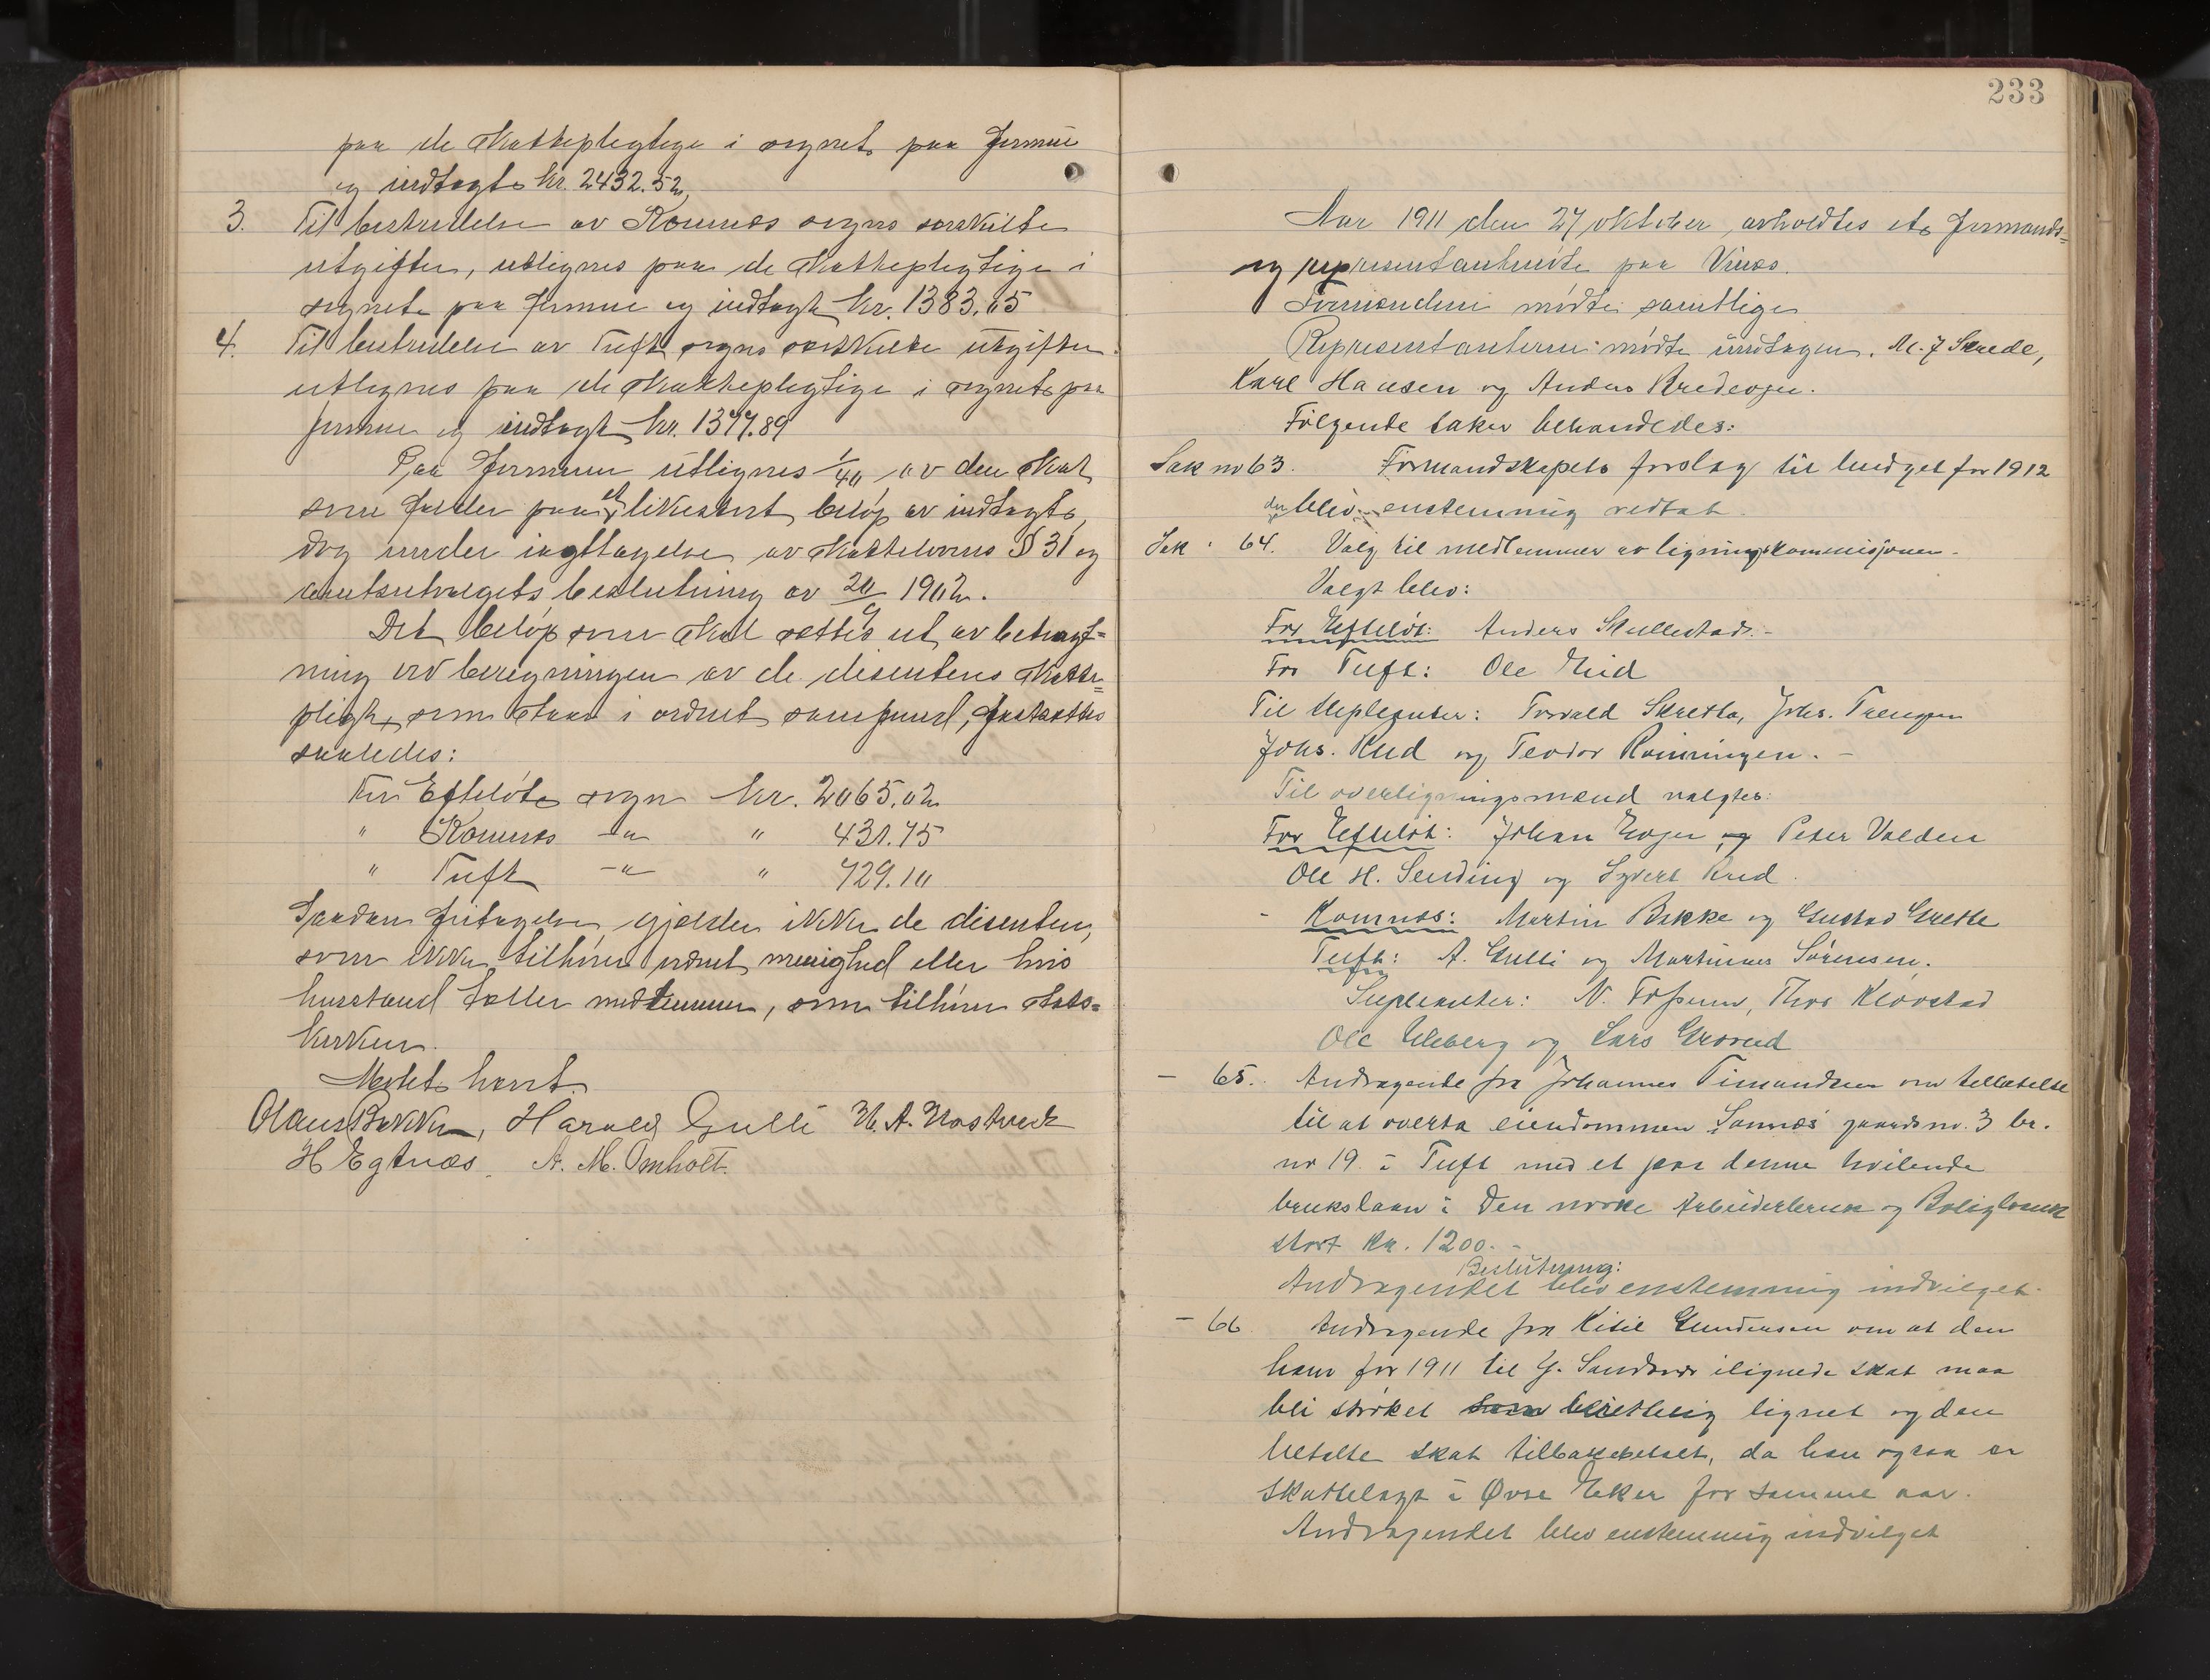 paa de skattepligtige i sognet paa formue
og indtægt kr. 2432.52,
3. Til bestridelse av Komnes sogns særskilte
utgifter, utlignes paa de skattepligtige i
sognet paa formue og indtægt kr. 1383.65
4. Til bestridelse av Tuft sogns særskilte utgifter
utlignes paa de skattepligtige i sognet paa
formue og indtægt kr. 1377.89
Paa formuen utlignes 1/40 av den skat
som falder paa et likestort beløp av indtægt,
dog under iagttagelse av skattelovens § 31 og
amtsutvalgets beslutning av 1902.
Det beløp som skal sættes ut av betragt=
ning ved beregningen av de disenteres skatte=
pligt, som staar i ordnet samfund, fastsættes
saaledes:
For Efteløt sogn kr. 2065.02
" Komnes —"— " 431.75
" Tuft —"— " 729.10
Saadan fritagelse gjælder ikke de disentere,
som ikke tilhører ordnet menighed eller hvis
husstand tæller medlemmer, som tilhører stats=
kirken.
Møtet hævet.
Olaus Bekken, Harald Gulli
H Egtnæs. A. M. Omholt.
233
Aar 1911 den 27 oktober avholdtes et formands=
og representantmøte paa Vinæs.
Formændene møtte samtlige
Representanterne møtte undtagen. M. J Skrede,
Karl Hansen og Anders Bredesgn.
Følgende saker behandledes:
Sak no 63. Formandskapets forslag til budget for 1912
blev enstemmig vedtat.
Sak " 64. Valg til medlemmer av ligningskommisjonen.
Valgt blev:
For Efteløt: Anders Skullestad. -
For Tuft: Ole Lid
Til supleanter: Torvald Skretta, Johs.
Johs. Rud og Teodor Rønningen. -
Til overligningsmænd valgtes:
For Efteløt: Johan Evju og Peter Valden
Ole H. Sending og Syvert Rud.
- Komnæs: Martin Bakke og Gustav Grette
Tuft: A. Gulli og Martinus Sørensen.
Supleanter: N. Fossum, Thor Kløvstad
Ole Ulleberg og Lars Grosvud
- 65. Andragende fra Johannes Timandsen om tillatelse
til at overta eiendommen Sannes gaardsno. 3 br.
no 19 i Tuft med et paa denne hvilende
brukslaan i Den norske Arbeiderbruk og Boligbank
stort Kr. 1200. -
Beslutning:
Andragendet blev enstemmig indvilget.
- 66 Andragende fra Kitil Gundersen om at den
ham for 1911 til Y. Sandsvær ilignede skat maa
bli strøket lignet og den
betalte skat tilbakebetalt, da han ogsaa er
skattelagt i Øvre Eker for samme aar.
Andragendet blev enstemmig indvilget